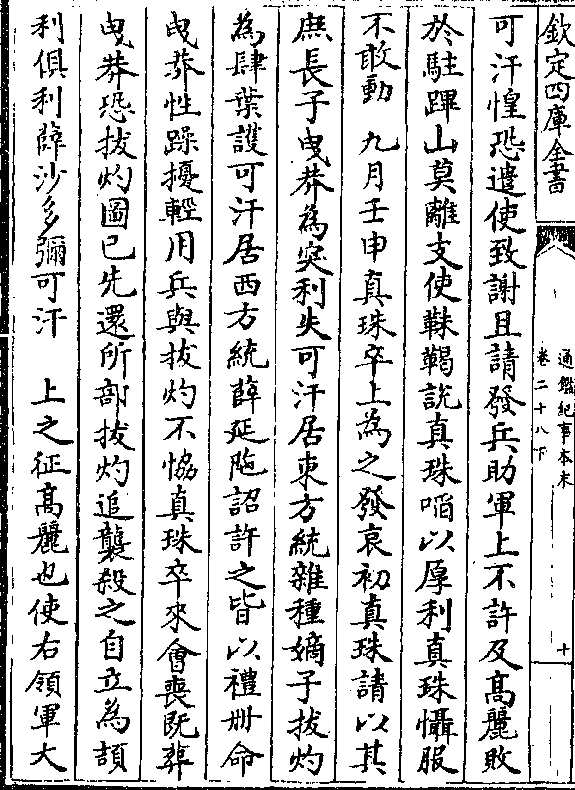 欽定四庫全書
通鑑紀事本末
卷二十八下
十
可汗惶恐遣使致謝且請發兵助軍上不許及高麗敗
於駐蹕山莫離支使靺鞨説真珠啗以厚利真珠懾服
不敢動　九月壬申真珠卒上為之發哀初真珠請以其
庶長子曳莽為突利失可汗居東方統雜種嫡子拔灼
為肆葉護可汗居西方統薛延陁詔許之皆以禮册命
曳莽性躁擾輕用兵與拔灼不恊真珠卒來㑹喪既葬
曳莽恐拔灼圖已先還所部拔灼追襲殺之自立為頡
利俱利薛沙多彌可汗　上之征高麗也使右領軍大